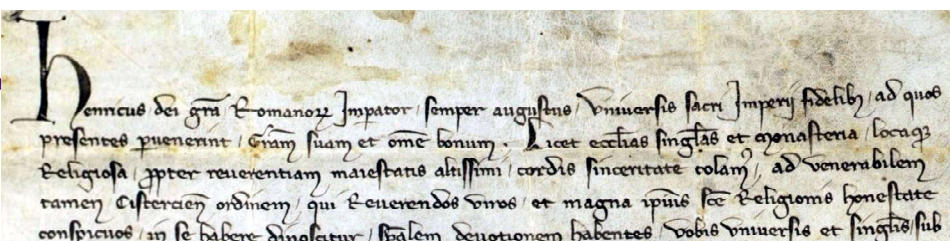 Henricus dei gr̄a Romanoꝝ Imperator semper augustus / Vniuersis sacri Imperij fidelibꝫ / ad quos
presentes ꝑuenerint / Gr̄am suam et om̄e bonum . Licet eccl̄ias singl̄as et monasteria / locaqꝫ
Religiosa / ꝓpter reuerentiam maiestatis altissimi / cordis sinceritate colam᷒ / ad venerabilem
tamen Cistercien̄ ordinem / qui Reuerendos viros / et magna ip̄ius sc̄e Religionis honestate
conspicuos / in se habere dinoscitur / sp̄alem deuotionem habentes / vobis vniuersis et singl̄is / sub